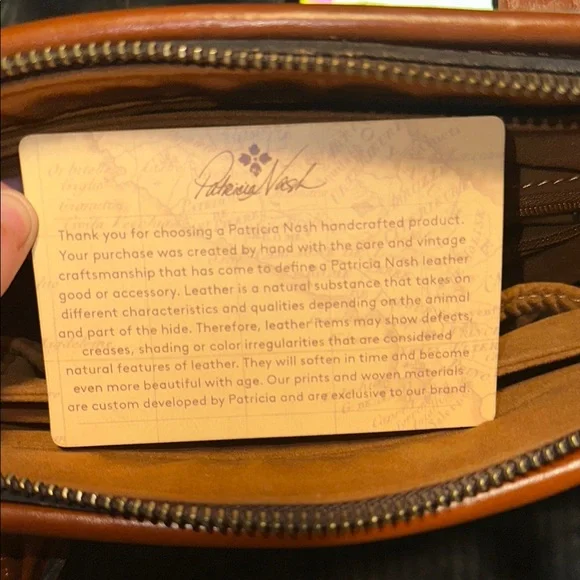 Patricia Nash
Thank you for choosing a Patricia Nash handcrafted product.
Your purchase was created by hand with the care and vintage
craftsmanship that has come to define a Patricia Nash leather
good or accessory. Leather is a natural substance that takes on
different characteristics and qualities depending on the animal
and part of the hide. Therefore, leather items may show defects,
creases, shading or color irregularities that are considered
natural features of leather. They will soften in time and become
even more beautiful with age. Our prints and woven materials
are custom developed by Patricia and are exclusive to our brand.